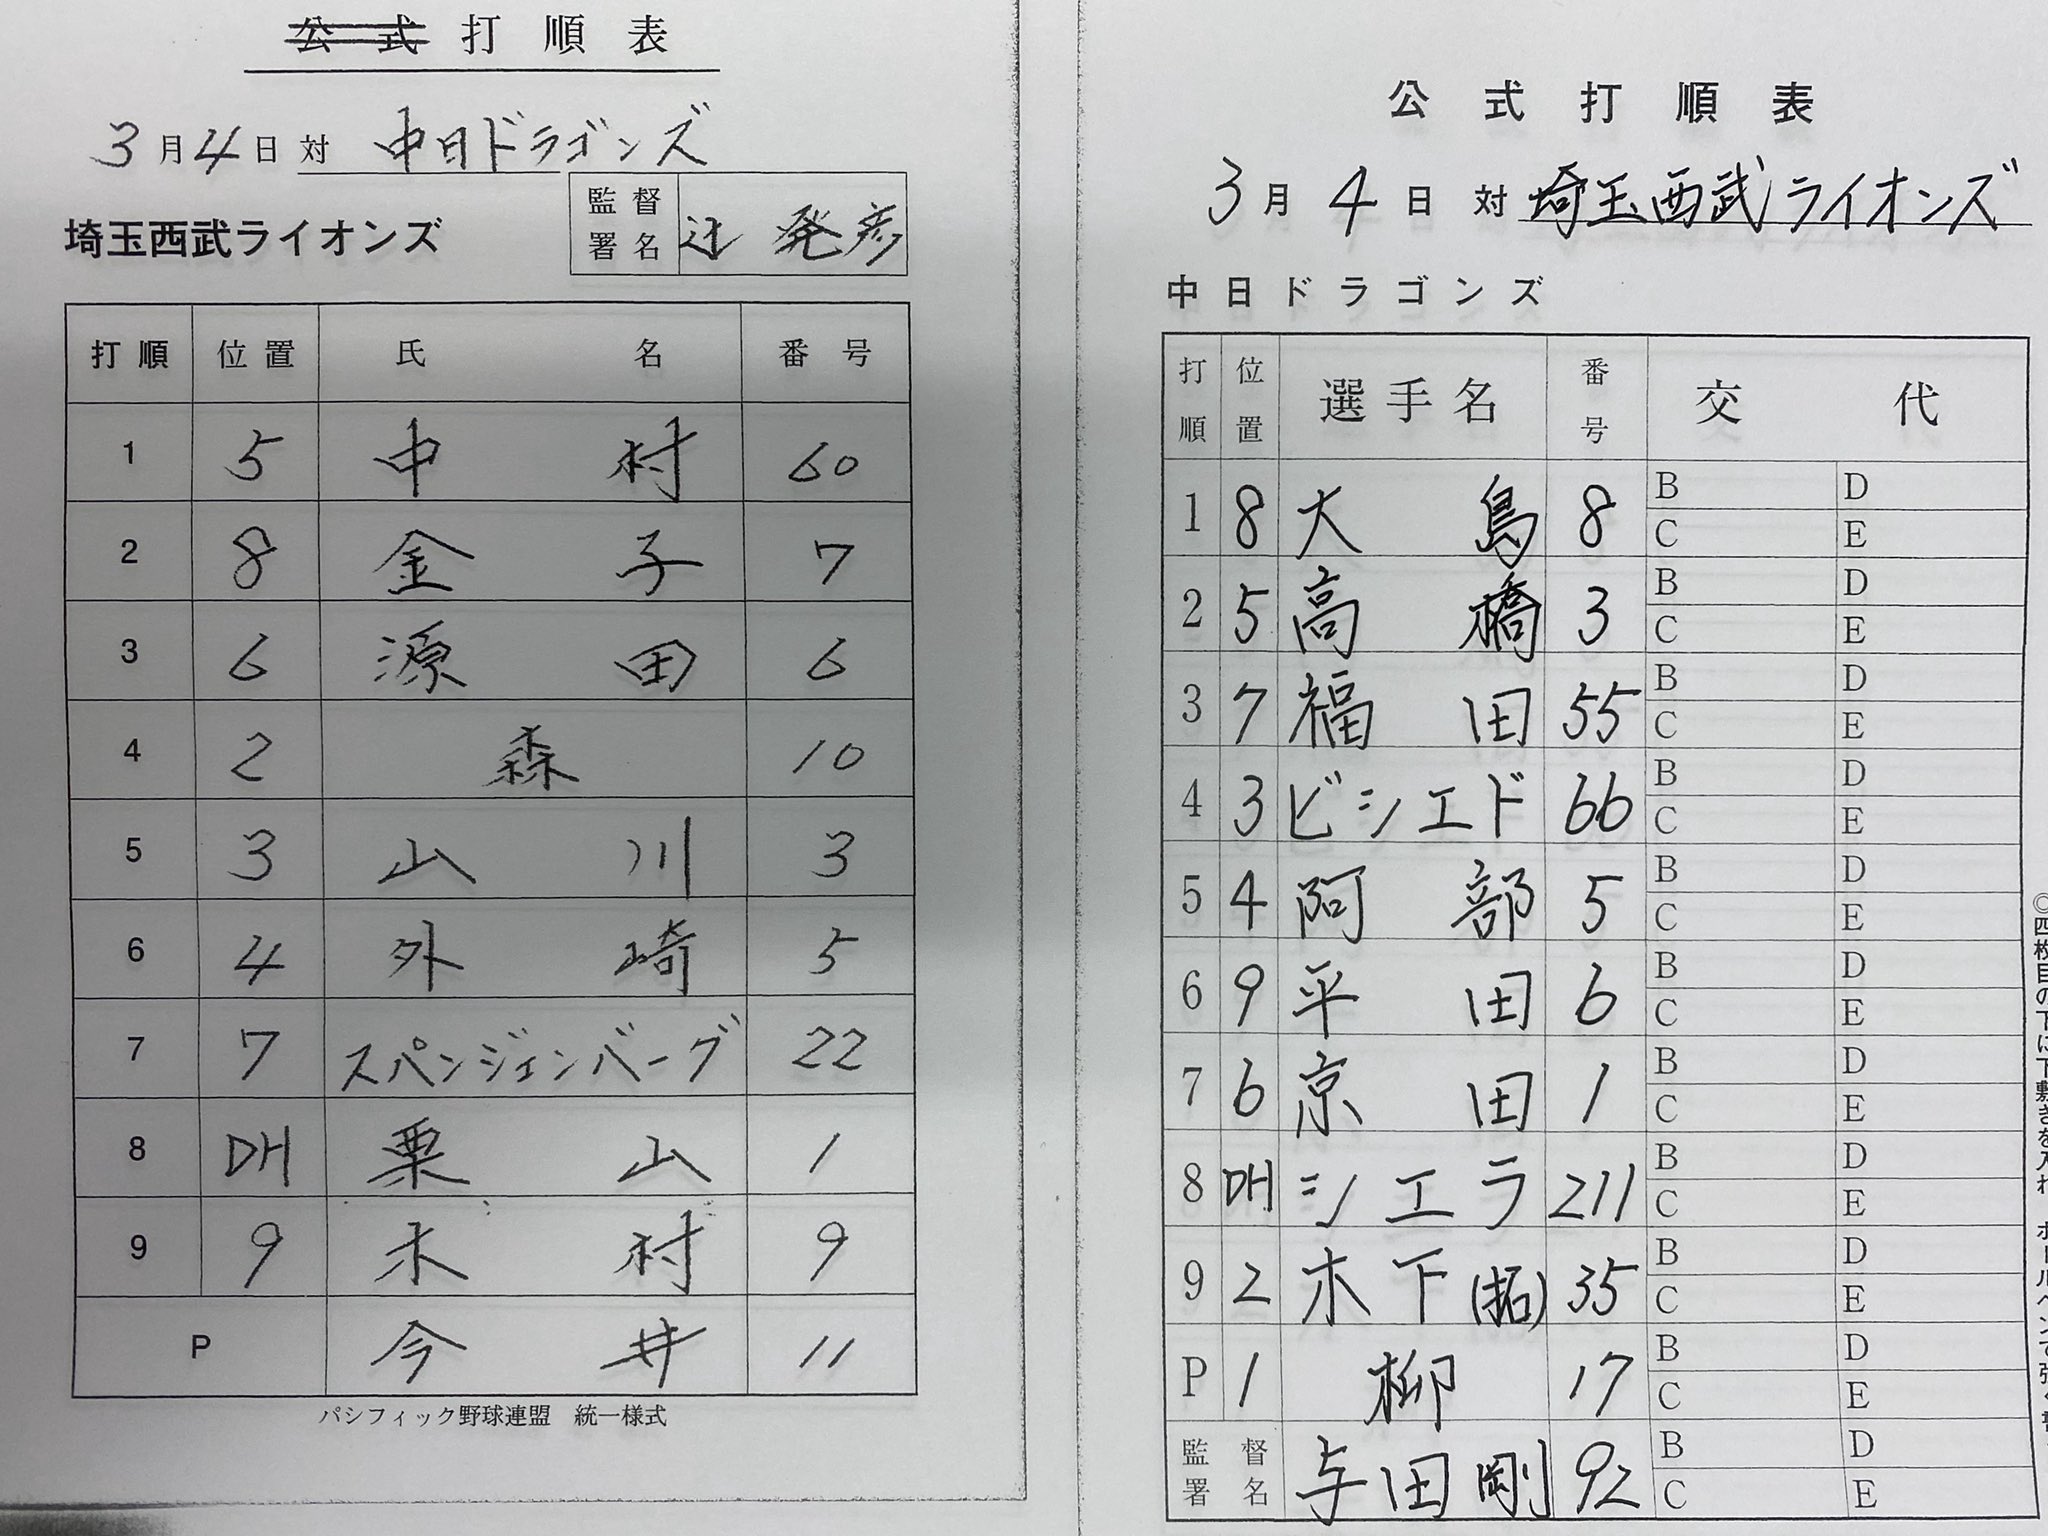 公式打順表
3月4日対 中日ドラゴンズ
埼玉西武ライオンズ 監督署名 辻 発彦
打順 位置 氏名 番号
1 5 中村 60
2 8 金子 7
3 6 源田 6
4 2 森 10
5 3 山川 3
6 4 外崎 5
7 7 スパンジェンバーグ 22
8 DH 栗山 1
9 9 木村 9
P 今井 11
パシフィック野球連盟 統一様式
公式打順表
3月4日 対 埼玉西武ライオンズ
中日ドラゴンズ
打順 位置 選手名 番号 交代
1 8 大島 8 B D
C E
2 5 高橋 3 B D
C E
3 7 福田 55 B D
C E
4 3 ビシエド 66 B D
C E
5 4 阿部 5 B D
C E
6 9 平田 6 B D
C E
7 6 京田 1 B D
C E
8 DH シエラ 211 B D
C E
9 2 木下(拓) 35 B D
C E
P 1 柳 17 B D
C E
監督署名 与田剛 92 B D
C E
◎四枚目の下に下敷きを入れ ボールペンで強く